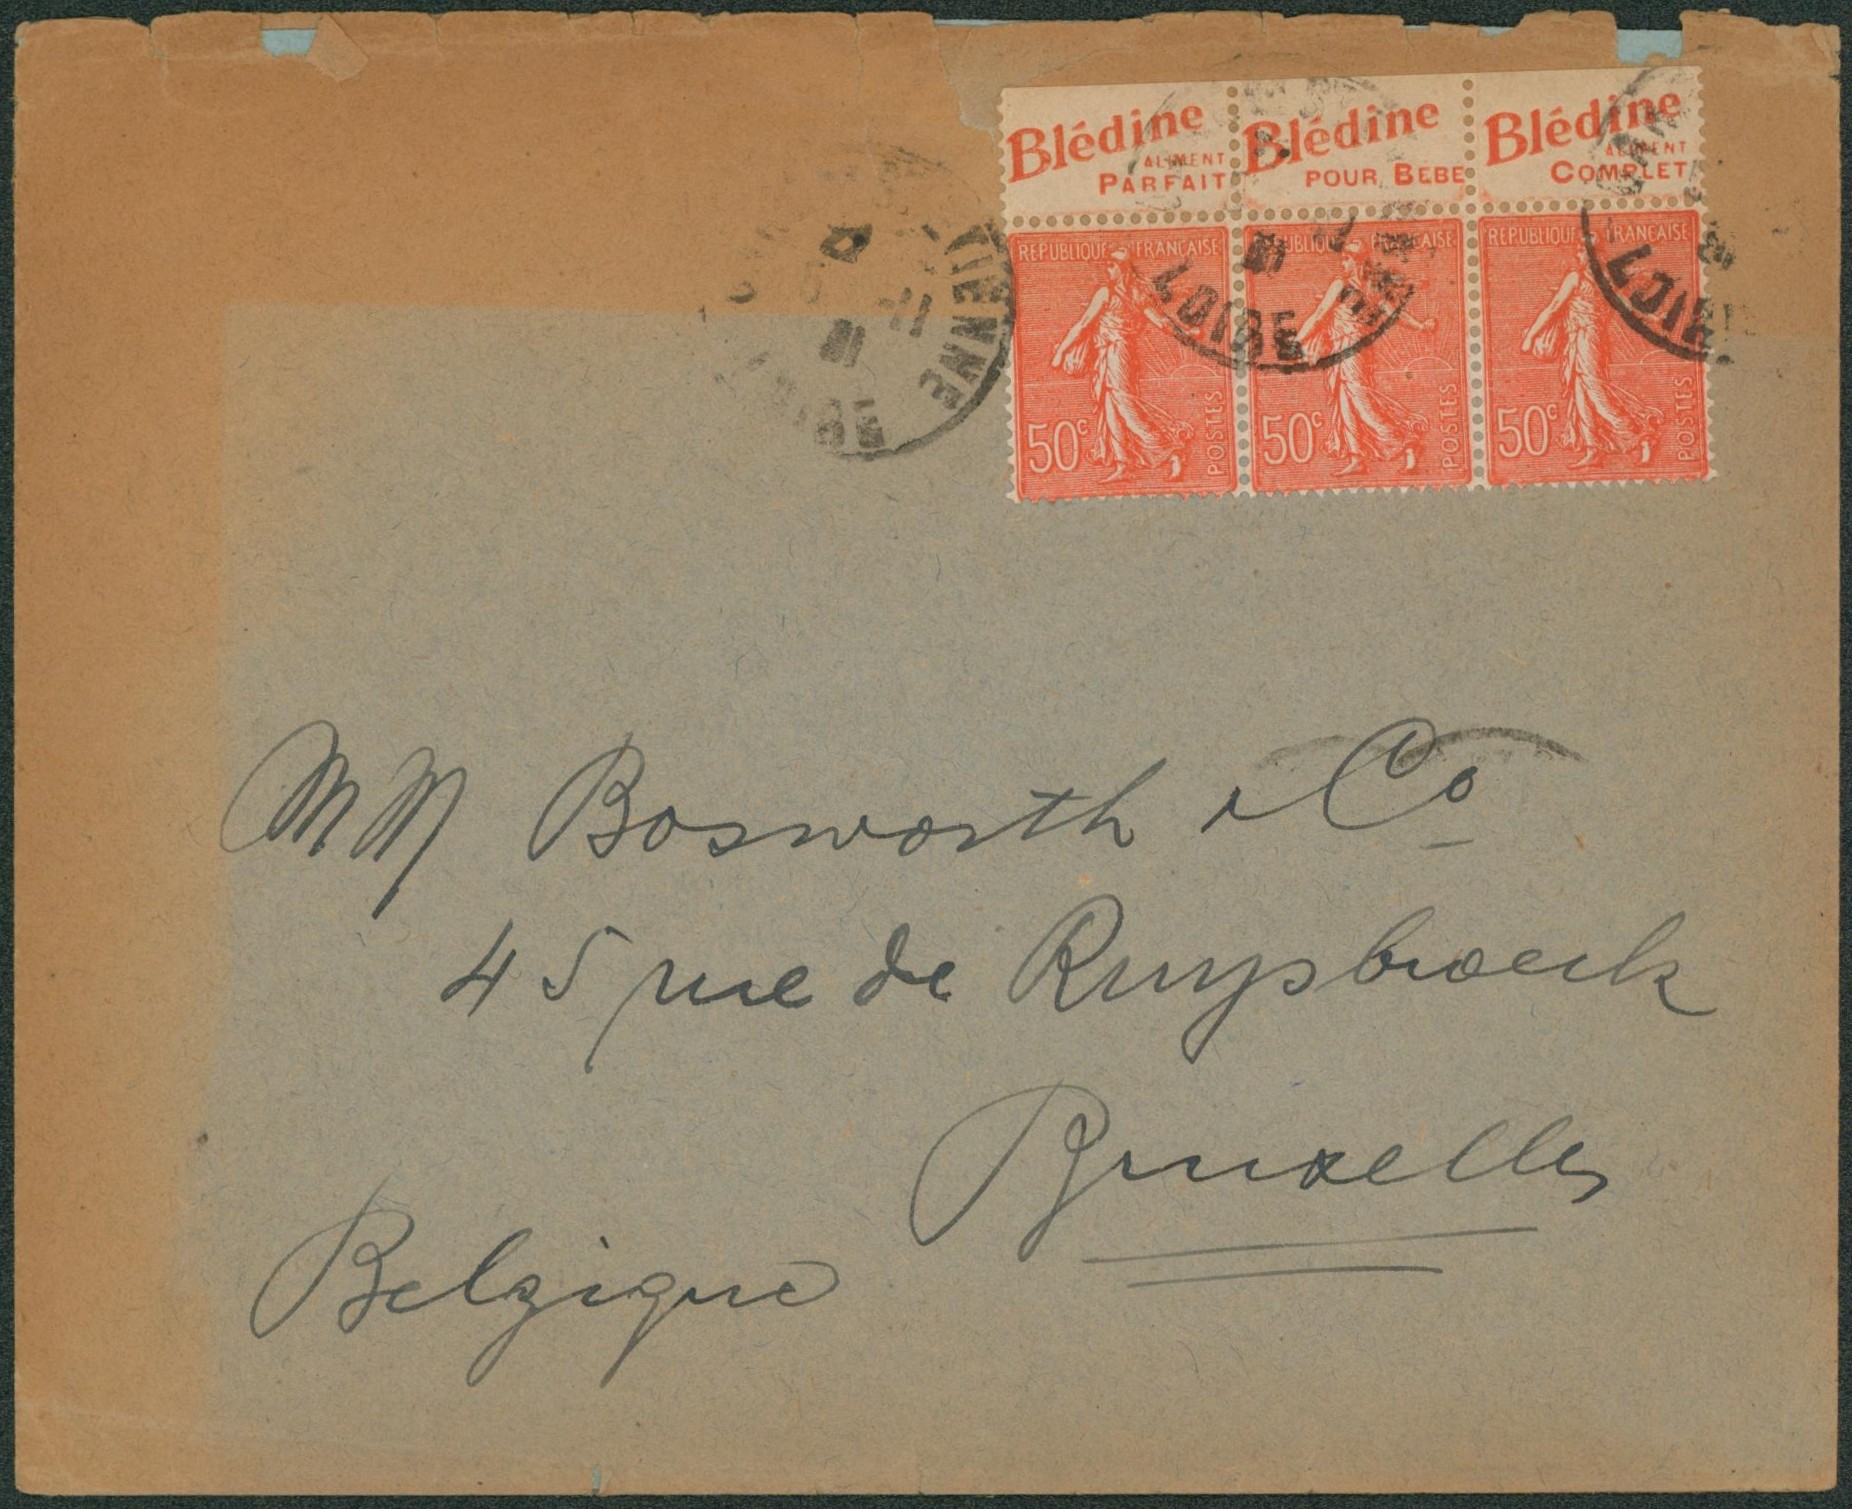 Blédine Blédine Blédine
ALIMENT ALIMENT
PARFAIT POUR BEBE COMPLET
REPUBLIQUE FRANCAISE REPUBLIQUE FRANCAISE REPUBLIQUE FRANCAISE
50c POSTES 50c POSTES 50c POSTES
ETIENNE
LOIRE
LOIRE
MM Bosworth & Co
45 rue de Ruysbroeck
Bruxelles
Belgique